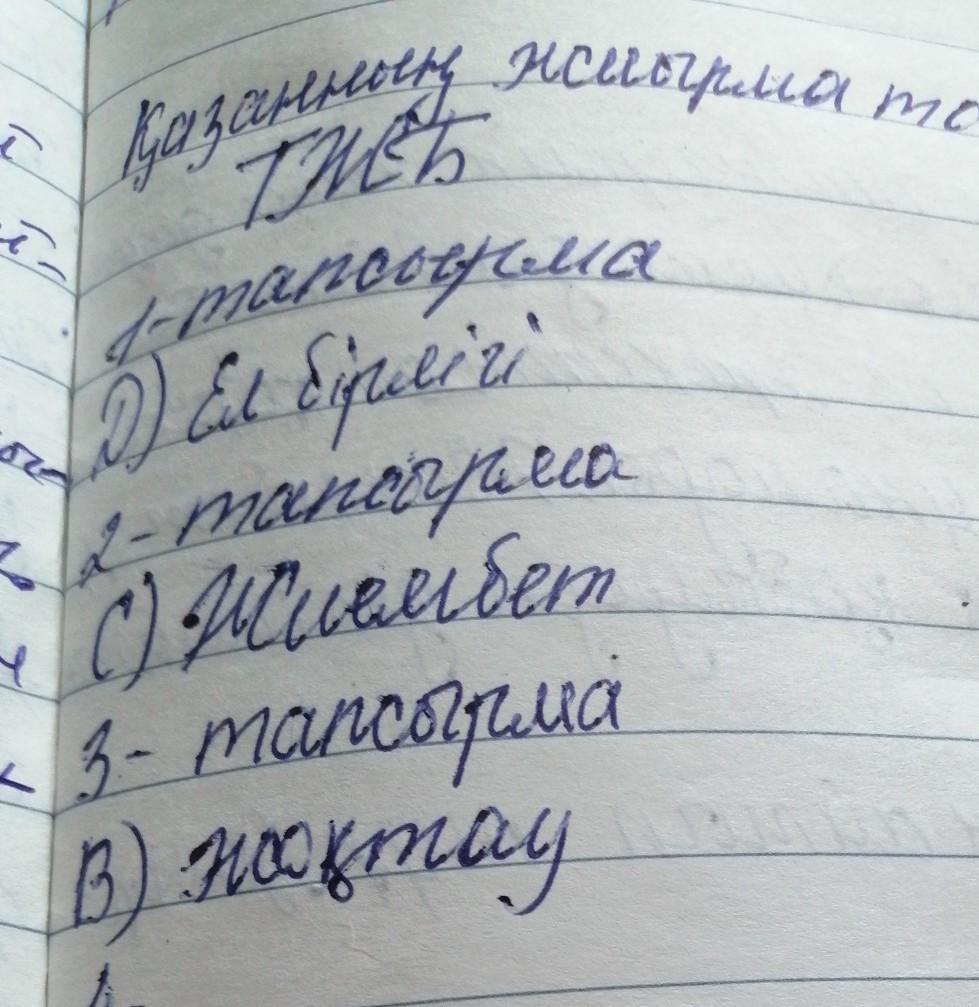 Қазанның жиырма то
ТЖБ
1-тапсырма
D) Ел бірлігі
2-тапсырма
C) Жиембет
3- тапсырма
B) жоқтау